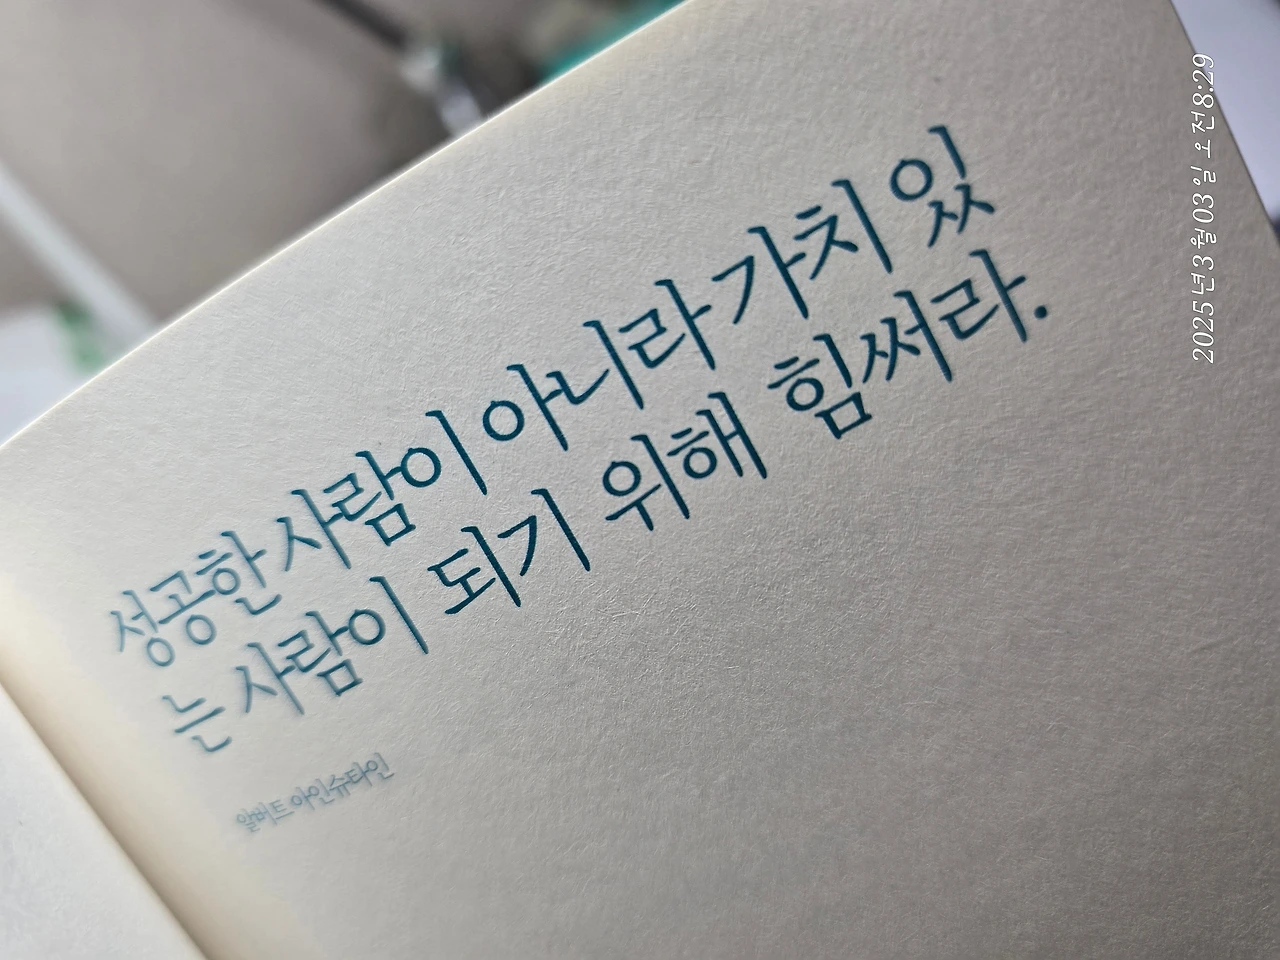 성공한 사람이 아니라 가치 있
는 사람이 되기 위해 힘써라.
알버트 아인슈타인
2025년 3월 03일 오전 8:29